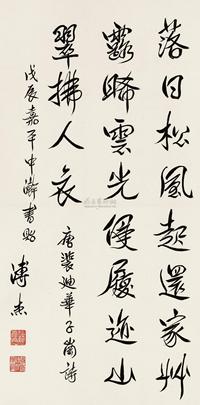 落日松風起還家艸
露晞雲光侵履迹山
翠拂人衣
唐裴迪華子崗詩
戊辰嘉平中澣書於
溥杰